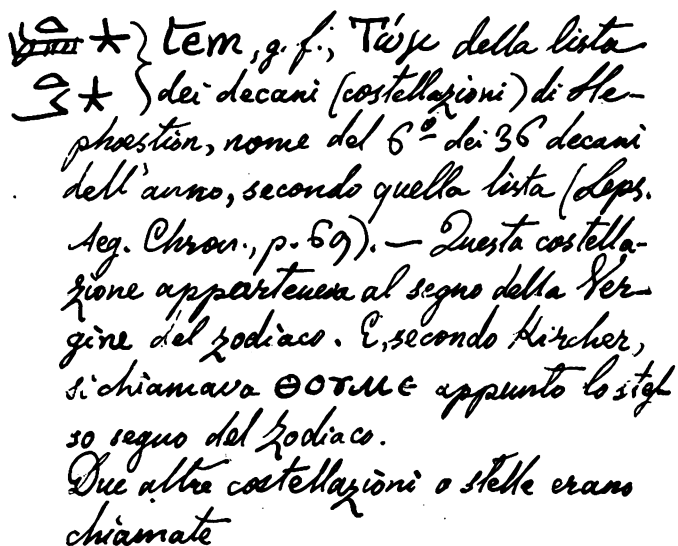 tem, g. f.; Τώμ della lista
dei decani (costellazioni) di He-
phæstion, nome del 6º dei 36 decani
dell'anno, secondo quella lista (Leps.
Aeg. Chron., p. 69). — Questa costella-
zione apparteneva al segno della Ver-
gine del zodiaco. E, secondo Kircher,
si chiamava ⲑⲟⲩⲙⲉ appunto lo stes-
so segno del zodiaco.
Due altre costellazioni o stelle erano
chiamate